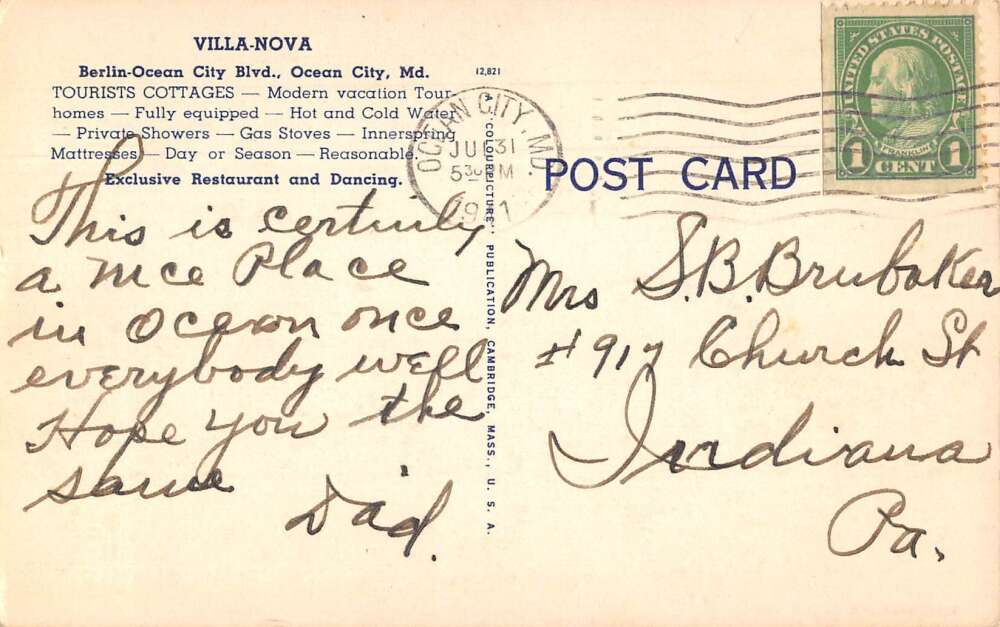 VILLA-NOVA
Berlin-Ocean City Blvd., Ocean City, Md.
TOURISTS COTTAGES — Modern vacation Tour-
homes — Fully equipped — Hot and Cold Water
— Private Showers — Gas Stoves — Innerspring
Mattresses — Day or Season — Reasonable.
Exclusive Restaurant and Dancing.
12,821
"COLOURPICTURE" PUBLICATION, CAMBRIDGE, MASS., U. S. A.
OCEAN CITY, MD.
31
5 30 PM
POST CARD
UNITED STATES POSTAGE
FRANKLIN
1 CENT 1
This is certainly
a nice Place
in Ocean once
everybody well
Hope you the
same
Dad.
Mrs S.B. Brubaker
#917 Church St
Indiana
Pa.